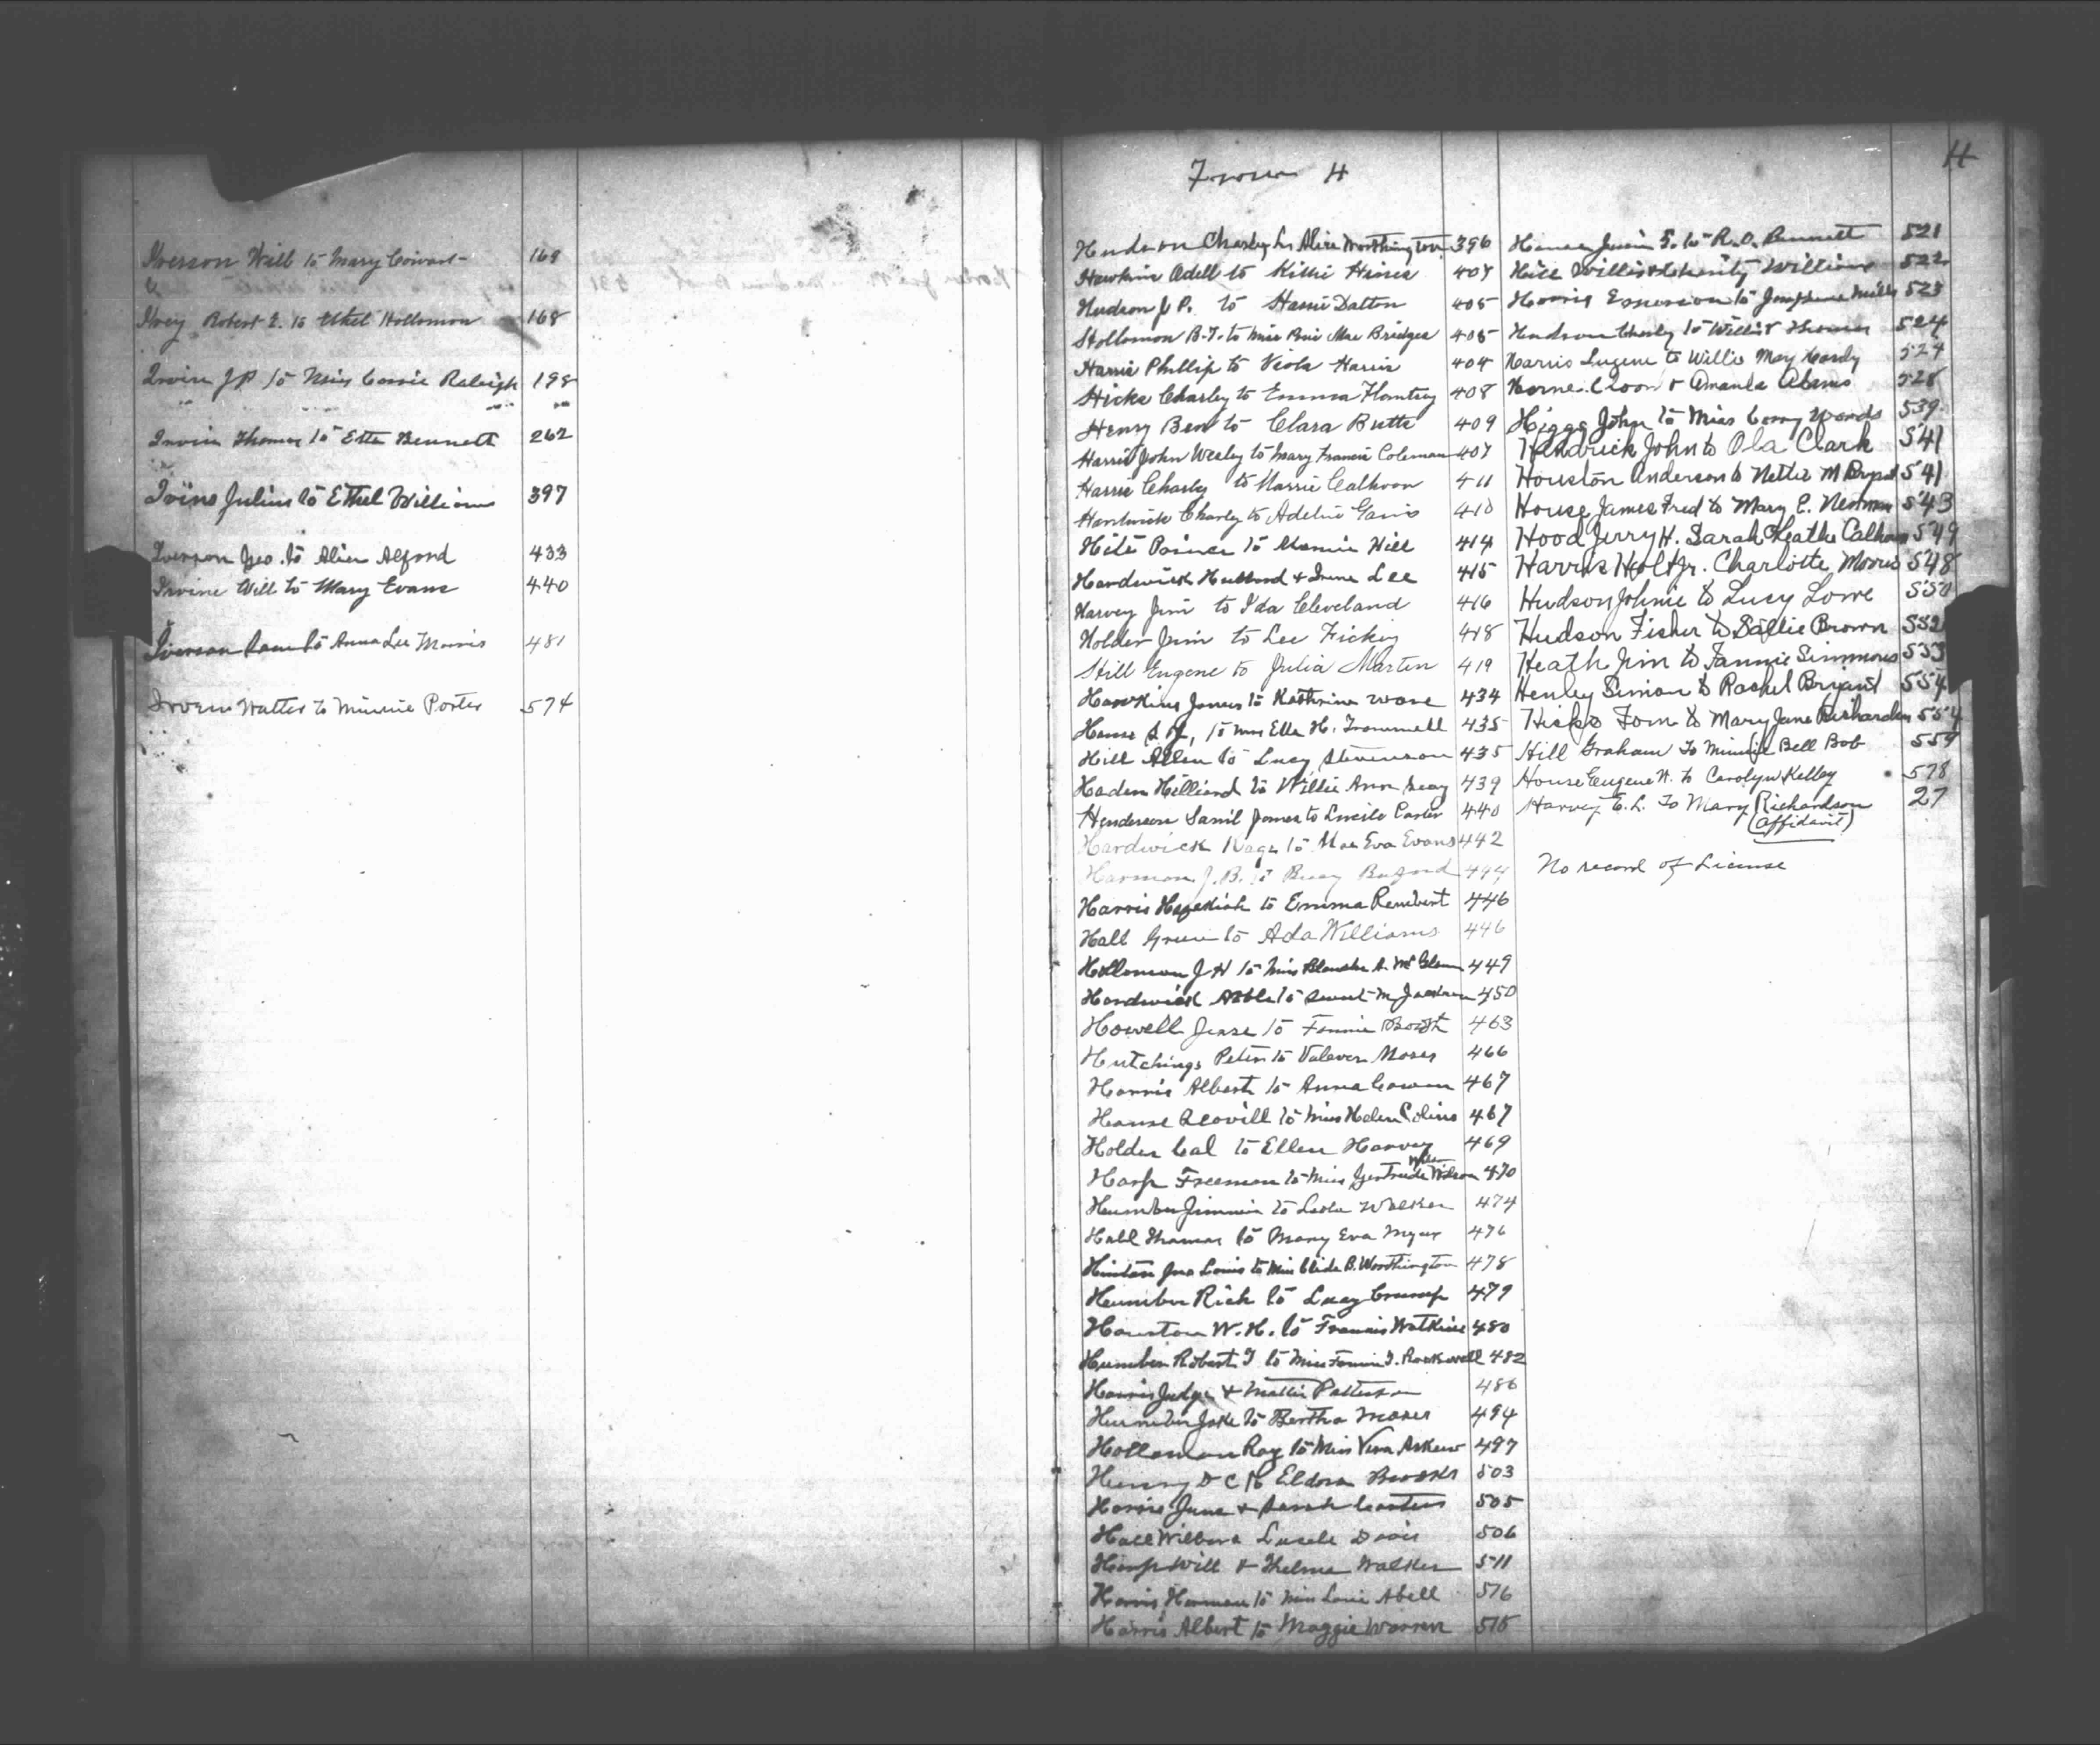 Iverson Will to Mary Cowart 169
Ivey Robert E. to Ethel Hollomon 168
Irvin J P to Miss Cassie Raleigh 198
Irvin Thomas to Etta Bennett 262
Ivins Julius to Ethel Williams 397
Iverson Geo. to Alice Alford 433
Irvine Will to Mary Evans 440
Iverson to Anna Lee Morris 481
Irven Walter to Minnie Porter 574
From H
H
Charley to Alice Worthington 396
Hawkins Odell to Kittie Hines 407
Hudson J P. to Dalton 405
Hollomon B. T. to Miss Mae Bridges 405
Harris Phillip to Viola Harris 404
Hicks Charley to Emma 408
Henry Ben to Clara Butts 409
Harris John Wesley to Mary Francis Coleman 407
Harris Charley to Calhoon 411
Hardwick Charley to Adeline 410
Hite to Mamie Hill 414
Hardwick Hubbard & Irene Lee 415
Harvey Jim to Ida Cleveland 416
Holder Jim to Lee 418
Hill Eugene to Julia Martin 419
Hawkins James to Kathrine Ware 434
House to Mrs Ella H. Trammell 435
Hill Allen to Lucy Stevenson 435
Haden Hilliard to Willie Ann 439
Henderson Saml James to Lucile Carter 440
Hardwick to Mae Eva Evans 442
Harmon J. B. to 444
Harris Hezekiah to Emma Rembert 446
Hall Green to Ada Williams 446
Holloman J H to Miss Blanche A. 449
Hardwick to Sweet M Jackson 450
Howell Jesse to Fannie Booth 463
Hutchings Peter to Moses 466
Harris Albert to Anna Cowan 467
House to Miss Helen 467
Holder Cal to Ellen Harvey 469
Harp Freeman to Miss Gertrude Wilson 470
Humber Jimmie to Leola Walker 474
Hall Thomas to Mary Eva 476
Hinton Jno Louis to Miss Clide B. Worthington 478
Humber Rich to Lucy Crump 479
Houston W. H. to Francis Watkins 480
Humber Robert T to Miss Fannie J. Rockwell 482
Harris Judge & Mattie Patterson 486
Humber Jake to Bertha Moses 494
Holloman Roy to Miss Vera Askew 497
Henry D C to Eldora Brooks 503
Harris June & Sarah 505
Hall Wilbur Lucile Davis 506
Harp Will & Thelma Walker 511
Harris Herman to Miss Abell 516
Harris Albert to Maggie Warren 515
to R. O. Bennett 521
Hill Willis Charity Williams 522
Harris Emerson to Josephine Mills 523
Hudson Charley to Thomas 524
Harris Eugene to Willie May Hardy 524
Horne & Amanda Adams 528
Higgs John to Miss Woods 539
Hendrick John to Ola Clark 541
Houston Anderson to Nettie M Bryant 541
House James Fred to Mary E. Newman 543
Hood Jerry H. Sarah Heath Calhoun 549
Harris Holt Jr. Charlotte Morris 548
Hudson Johnie to Lucy Lowe 550
Hudson Fisher to Sallie Brown 552
Heath Jim to Fannie Simmons 553
Henley Simon to Rachel Bryant 554
Hicks Tom to Mary Jane Richardson 554
Hill Graham To Minnie Bell Bob 559
House Eugene H. to Carolyn Kelley 578
Harvey E. L. To Mary Richardson 27
(Affidavit)
No record of License